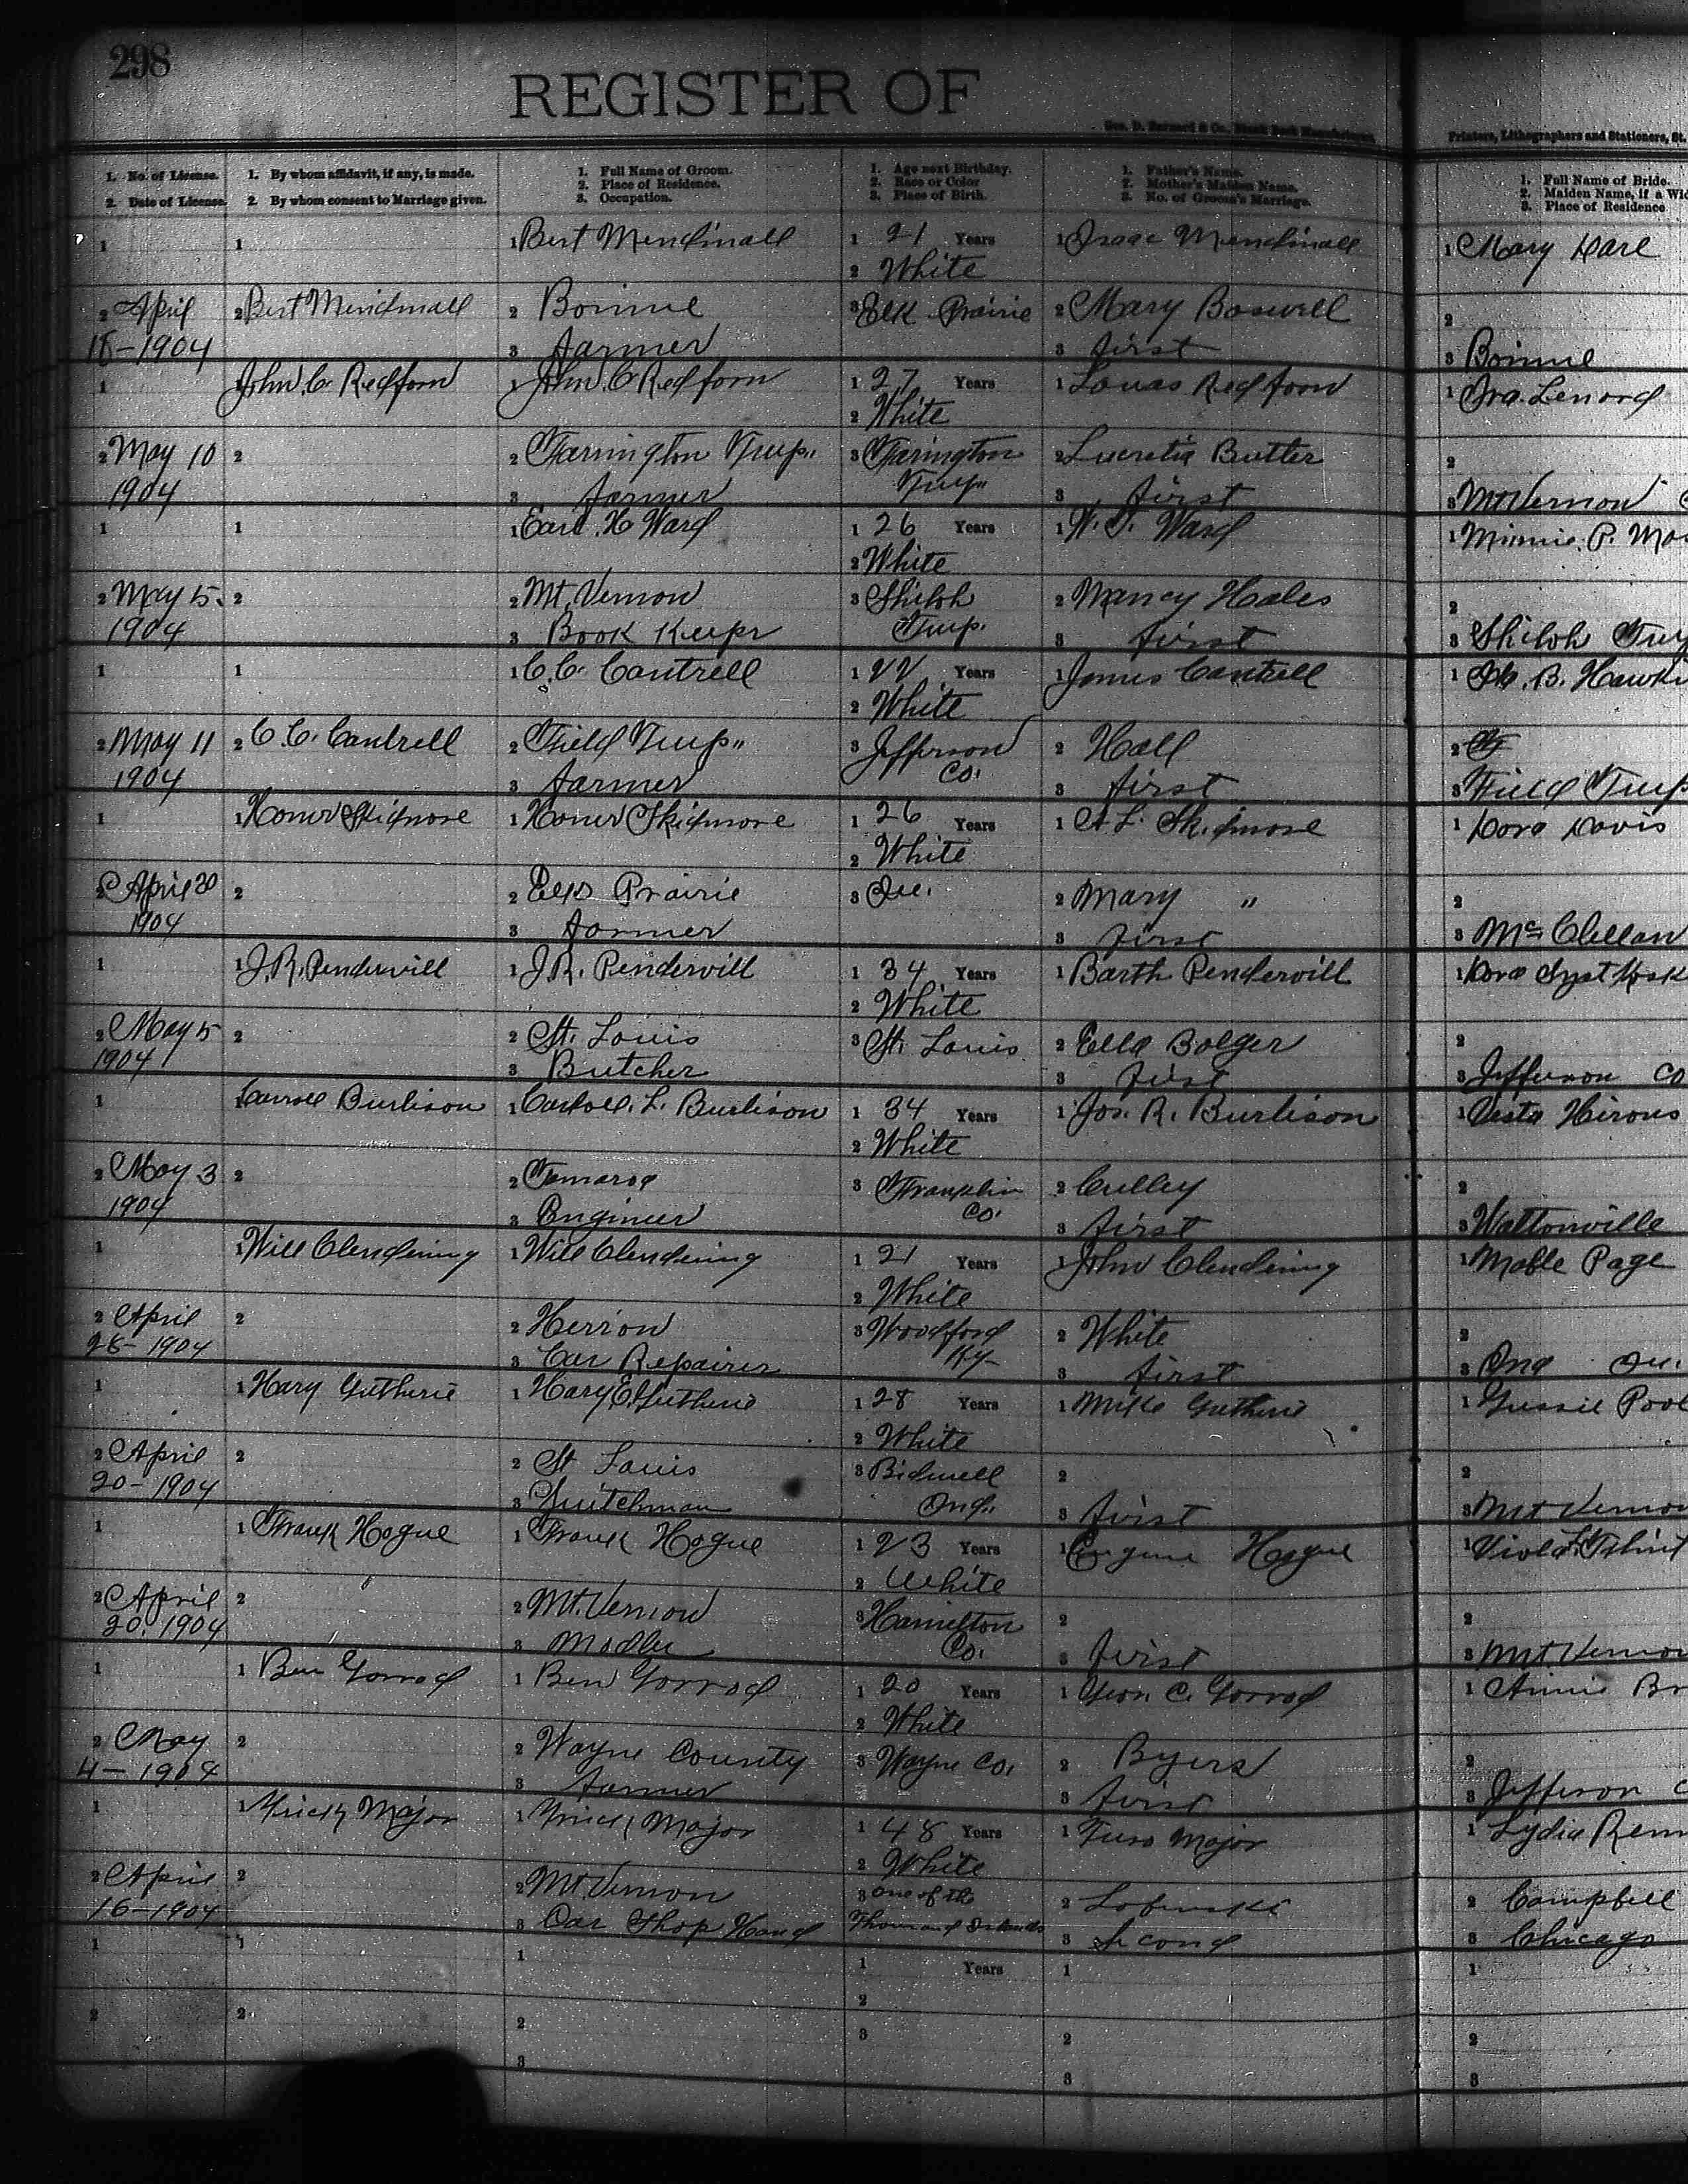 298
REGISTER OF
Geo. D. Barnard & Co. Blank Book Manufacturers,
Printers, Lithographers and Stationers, St.
1. No. of License.
2. Date of License.
1. By whom affidavit, if any, is made.
2. By whom consent to Marriage given.
1. Full Name of Groom.
2. Place of Residence.
3. Occupation.
1. Age next Birthday.
2. Race or Color
3. Place of Birth.
1. Father's Name.
2. Mother's Maiden Name.
3. No. of Groom's Marriage.
1. Full Name of Bride.
2. Maiden Name, if a Wid
3. Place of Residence
1
2 April
18-1904
1
2 Bert Mendinall
1 Bert Mendinall
2 Bonnie
3 farmer
1 21 Years
2 White
3 Elk Prairie
1 Isaac Mendinall
2 Mary Boswell
3 first
1 Mary Dare
2
3 Bonnie
1
2 May 10
1904
1 John C. Redforn
2
1 John C Redforn
2 Farrington Twp"
3 farmer
1 27 Years
2 White
3 Farington
Twp"
1 Louas Redforn
2 Lucretia Butler
3 first
1 Ora Lenord
2
3 Mt Vernon
1
2 May 15
1904
1
2
1 Earl. H Ward
2 Mt. Vernon
3 Book Keepr
1 26 Years
2 White
3 Shiloh
Twp.
1 Ward
2 Nancy Hales
3 first
1 Minnie. P. Mos
2
3 Shiloh Twp
1
2 May 11
1904
1
2 C. C. Cantrell
1 C. C. Cantrell
2 Field Twp"
3 farmer
1 22 Years
2 White
3 Jefferson
Co.
1 James Cantrell
2 Hall
3 first
1 B. Hawki
2
3 Field Twp
1
2 April 30
1904
1 Homer Skidmore
2
1 Homer Skidmore
2 Elk Prairie
3 farmer
1 26 Years
2 White
3 Ill.
1 A L. Skidmore
2 Mary "
3 first
1 Dora Davis
2
3 Mc Clellan
1
2 May 5
1904
1 J. R. Pendervill
2
1 J. R. Pendervill
2 St. Louis
3 Butcher
1 34 Years
2 White
3 St. Louis
1 Barth Pendervill
2 Ella Bolger
3 first
1 Dora
2
3 Jefferson Co
1
2 May 3
1904
1 Carroll Burlison
2
1 Carroll. L. Burlison
2 Tamaroa
3 Engineer
1 34 Years
2 White
3 Franklin
Co.
1 Jos. R. Burlison
2 Culley
3 first
1 Vesta Hirons
2
3 Waltonville
1
2 April
28-1904
1 Will Clendining
2
1 Will Clendining
2 Herrion
3 Car Repairer
1 21 Years
2 White
3 Woodford
Ky-
1 John Clendining
2 White
3 first
1 Mable Page
2
3 Ina Ill.
1
2 April
20-1904
1 Hary Gutherie
2
1 Hary E. Gutherie
2 St Louis
3 Switchman
1 28 Years
2 White
3 Bidwell
Ind"
1 Mike Gutherie
2
3 first
1 Gussie Pool
2
3 Mt Vernon
1
2 April
20. 1904
1 Frank Hogue
2
1 Frank Hogue
2 Mt. Vernon
3 Molder
1 23 Years
2 White
3 Hamelton
Co.
1 Eugene Hogue
2
3 first
1 Viola
2
3 Mt Vernon
1
2 May
4-1904
1 Ben Gorrod
2
1 Ben Gorrod
2 Wayne County
3 farmer
1 20 Years
2 White
3 Wayne Co.
1 Geon. C. Gorrod
2 Byers
3 first
1 Annie Br
2
3 Jefferson C
1
2 April
16-1904
1 Major
2
1 Major
2 Mt. Vernon
3 Car Shop Hand
1 48 Years
2 White
3 One of the
Thousand Islands
1 Major
2
3 Second
1 Lydia
2 Campbell
3 Chicago
1
2
1
2
1
2
3
1 Years
2
3
1
2
3
1
2
3